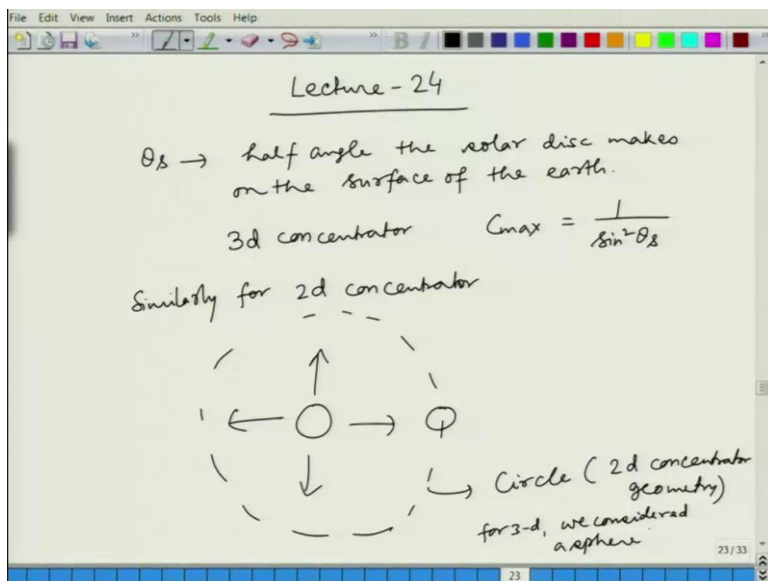 File Edit View Insert Actions Tools Help
B I
Lecture - 24
θs → half angle the solar disc makes
on the surface of the earth.
3d concentrator Cmax = 1 / sin²θs
Similarly for 2d concentrator
Circle ( 2d concentrator
geometry)
for 3-d, we considered
a sphere.
23 / 33
23